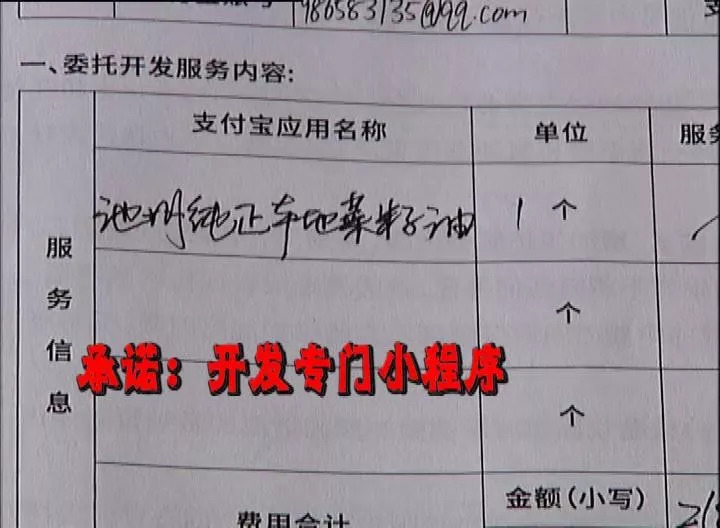 986583135@qq.com
一、委托开发服务内容:
支付宝应用名称 单位 服务
池州纯正本地菜籽油 1 个
服务信息
个
承诺：开发专门小程序
个
金额(小写)
费用合计